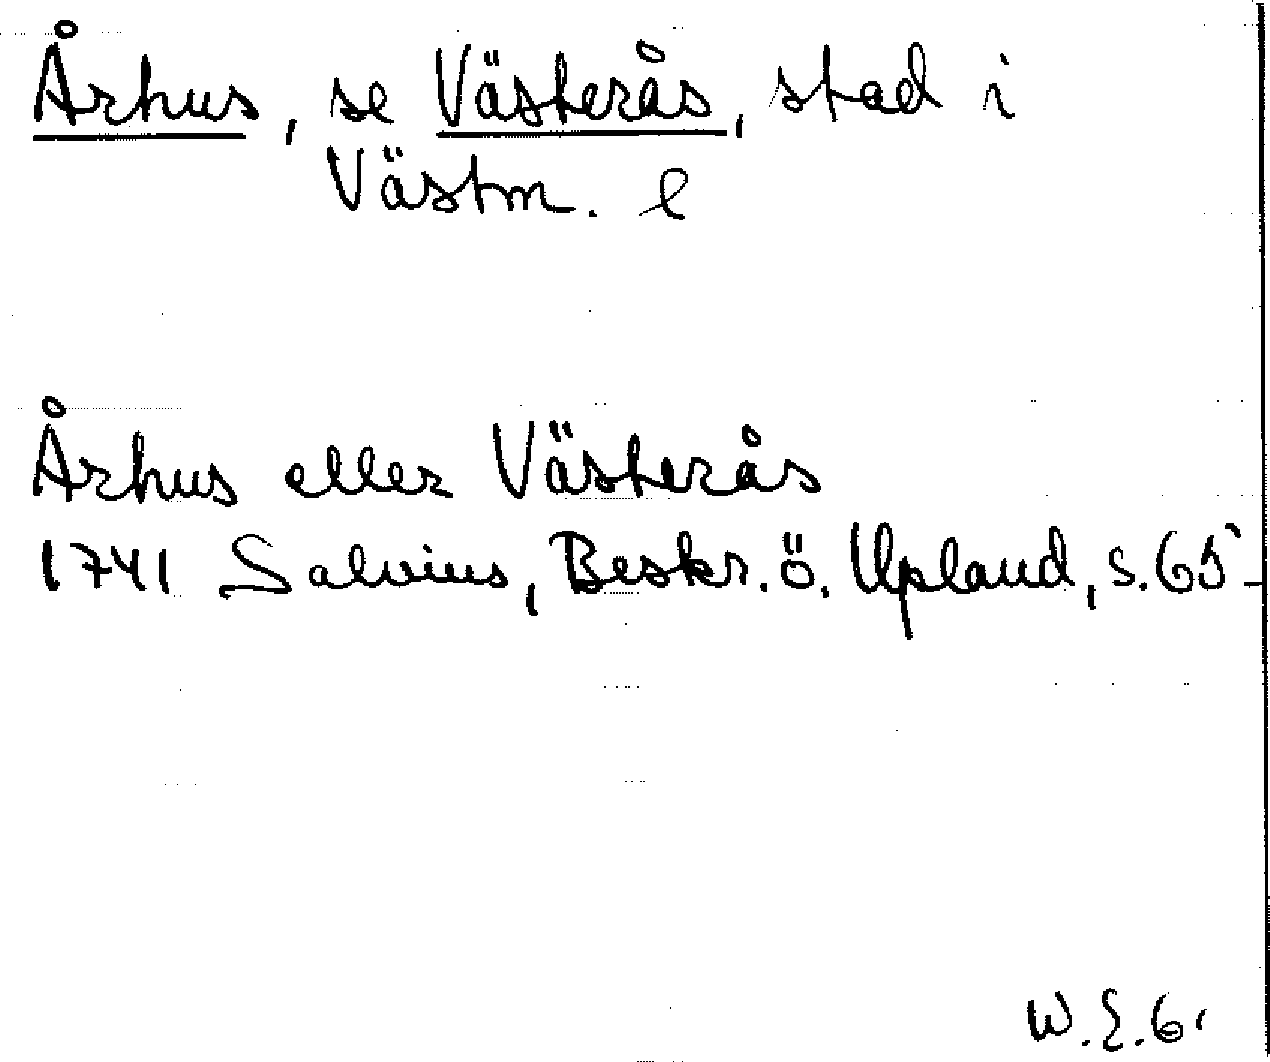 Århus, se Västerås, stad i
Västm. l
Århus eller Västerås
1741 Salvius, Beskr. ö. Upland, s. 65
W.E.G.